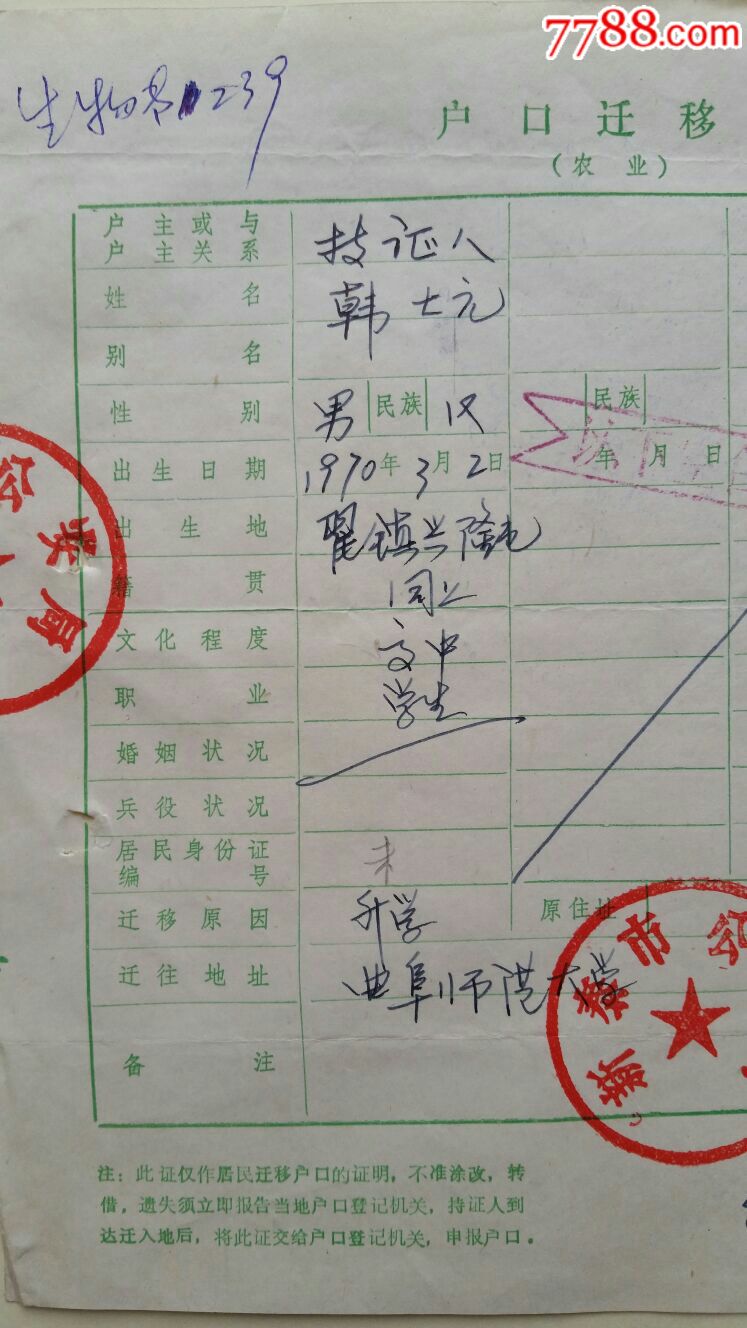 7788.com
生物系 239
户口迁移
(农业)
户主或与
户主关系 持证人
姓名 韩士元
别名
性别 男 民族 汉 民族
出生日期 1970年3月2日 年 月 日
出生地 翟镇兴隆庄
籍贯 同上
文化程度 高中
职业 学生
婚姻状况
兵役状况
居民身份证
编号 未
迁移原因 升学 原住址
迁往地址 曲阜师范大学
备注
公安局
新泰市公
注：此证仅作居民迁移户口的证明，不准涂改，转
借，遗失须立即报告当地户口登记机关，持证人到
达迁入地后，将此证交给户口登记机关，申报户口。